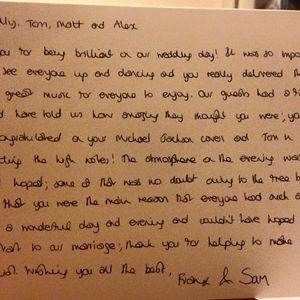 lly, Tom, Matt and Alex
you for being brilliant on our wedding day! It was so impor
see everyone up and dancing and you really delivered th
great music for everyone to enjoy. Our guests had a
have told us how amazing they thought you were; you
ongratulated on your Michael Jackson covers and Tom
the high notes! The atmosphere on the evening was
hoped; some of that was no doubt owing to the free b
that you were the main reason that everyone had such a
a wonderful day and evening and couldn't have hoped
start to our marriage; thank you for helping to make
Wishing you all the best,
& Sam